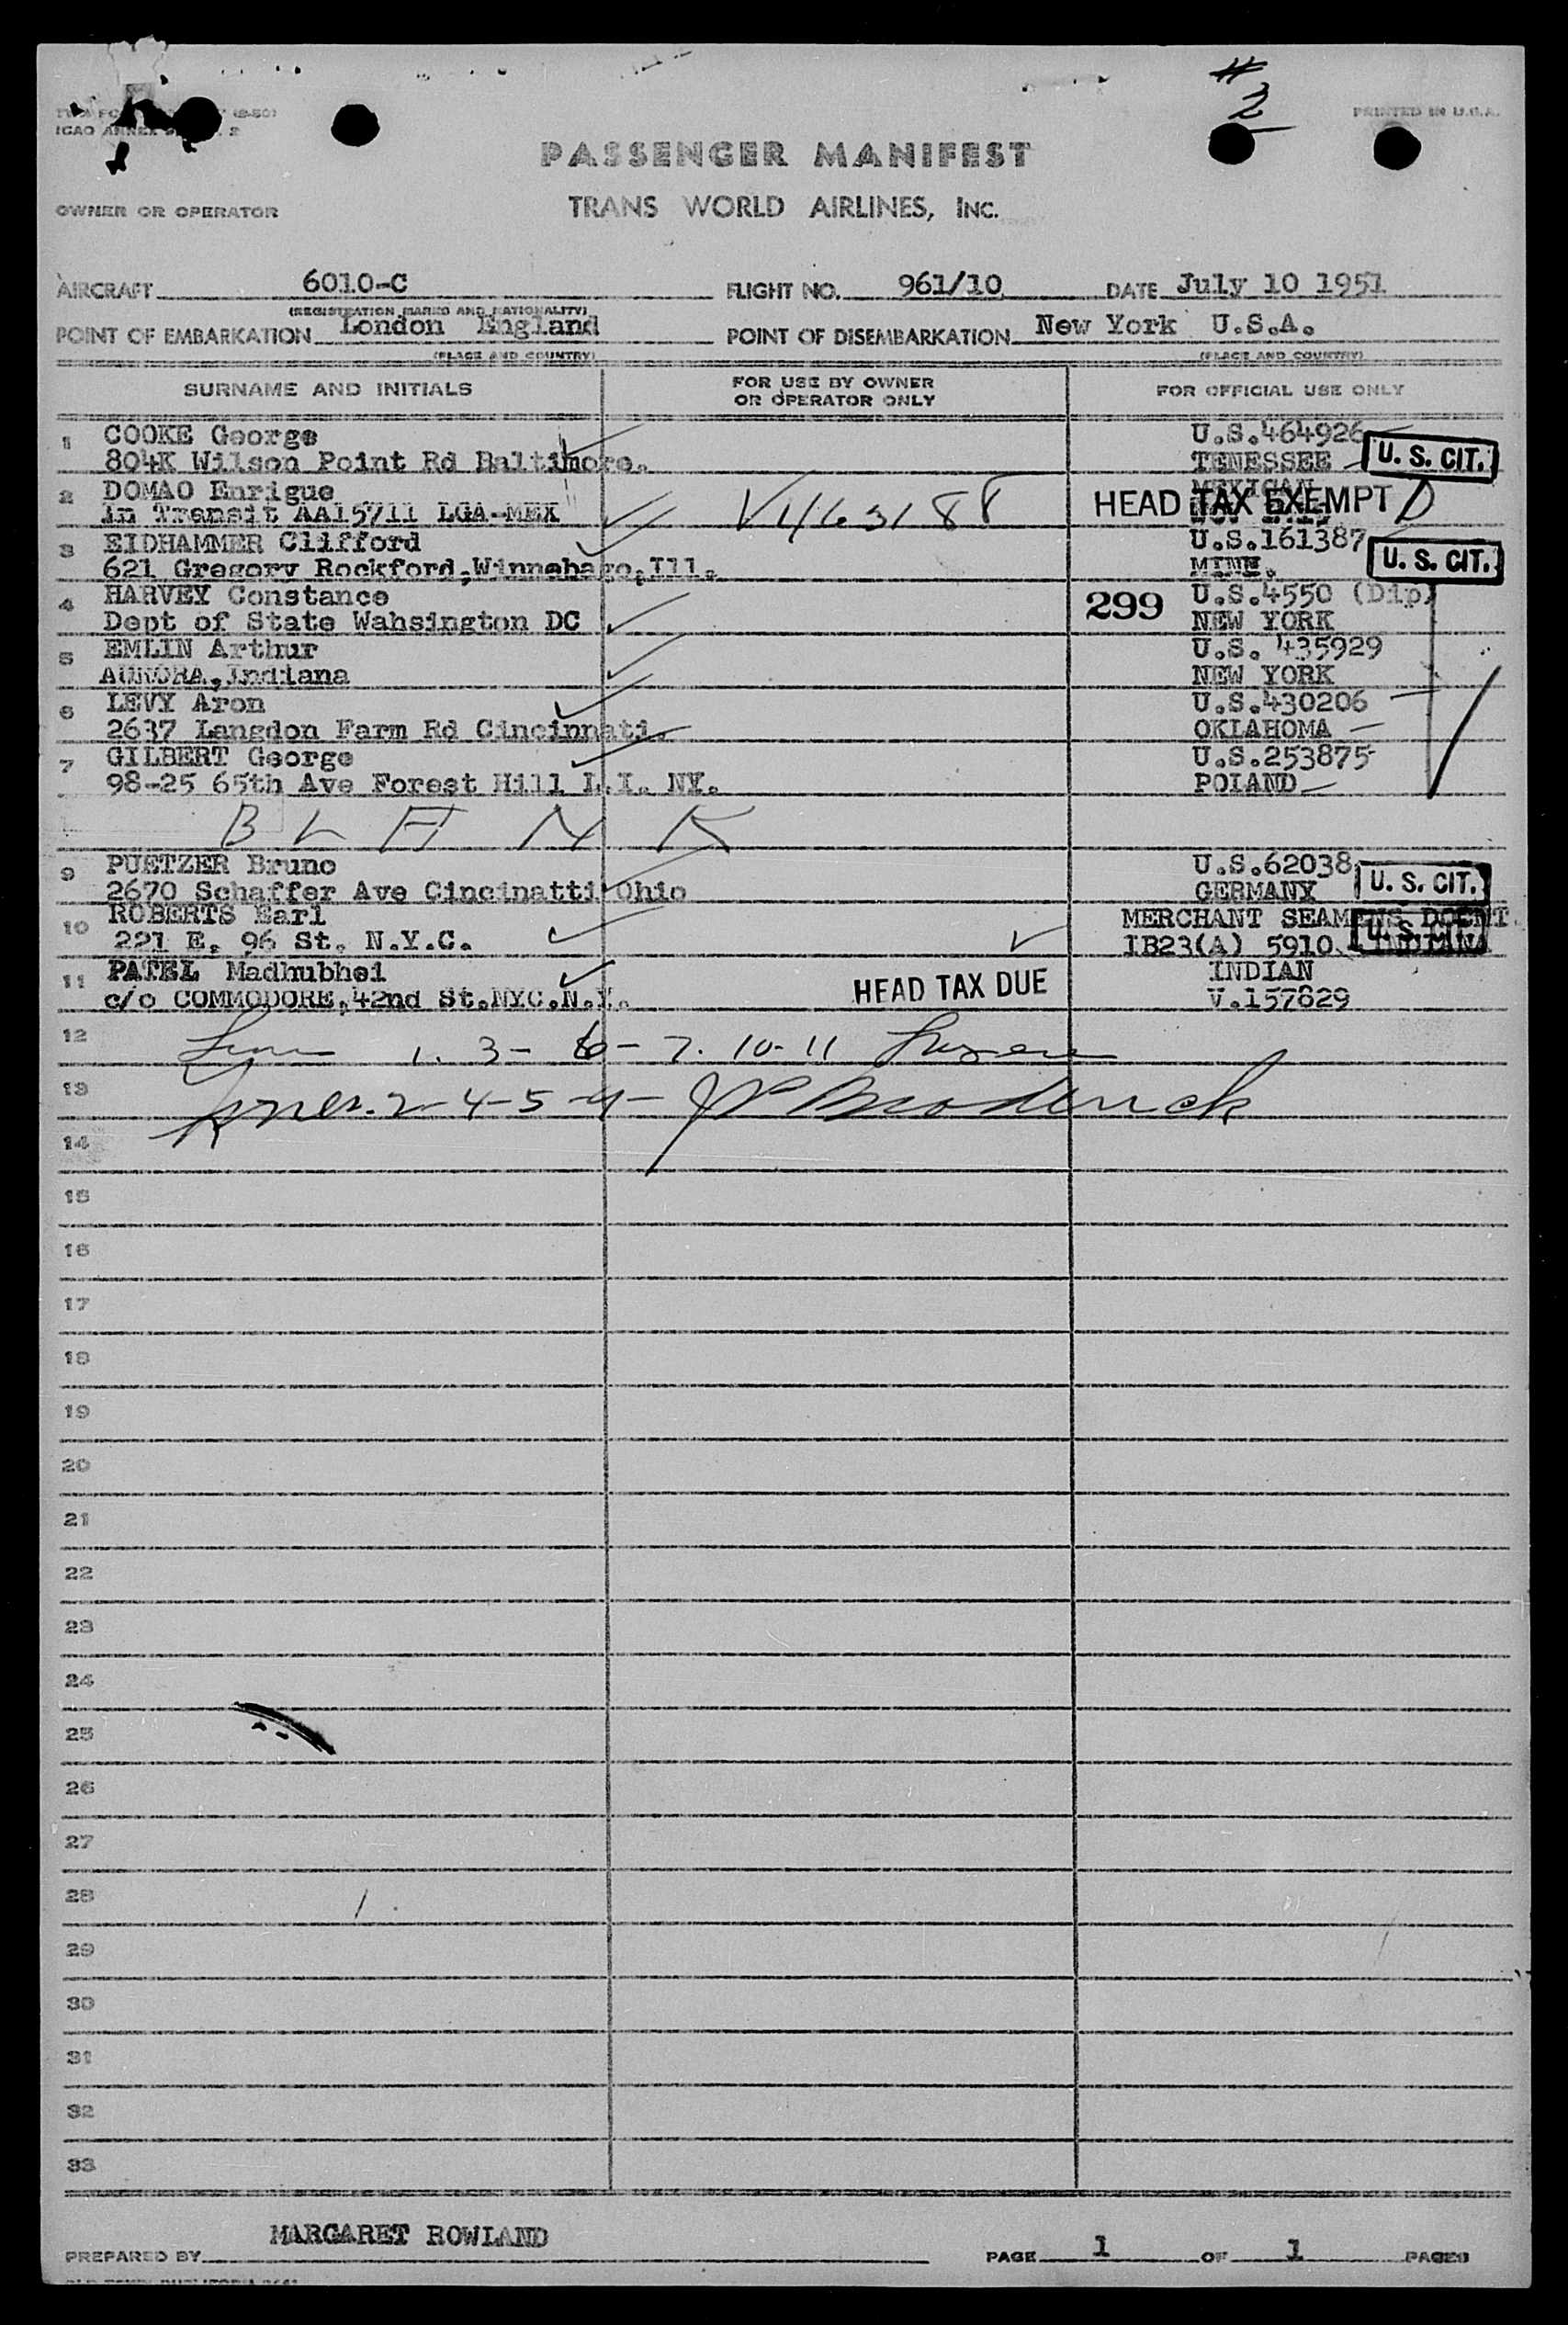 #
2
ICAO ANNEX
PRINTED IN U.S.A.
PASSENGER MANIFEST
OWNER OR OPERATOR
TRANS WORLD AIRLINES, INC.
AIRCRAFT 6010-C FLIGHT NO. 961/10 DATE July 10 1951
(REGISTRATION MARKS AND NATIONALITY)
POINT OF EMBARKATION London England POINT OF DISEMBARKATION New York U.S.A.
(PLACE AND COUNTRY) (PLACE AND COUNTRY)
SURNAME AND INITIALS FOR USE BY OWNER OR OPERATOR ONLY FOR OFFICIAL USE ONLY
1 COOKE George U.S.464926
804K Wilson Point Rd Baltimore. TENESSEE U. S. CIT.
2 DOMAO Enrigue MEXICAN
in Transit AA15711 LGA-MEX V1163188 HEAD TAX EXEMPT D
3 EIDHAMMER Clifford U.S.161387
621 Gregory Rockford,Winnebago,Ill. MINN. U. S. CIT.
4 HARVEY Constance 299 U.S.4550 (Dip)
Dept of State Wahsington DC NEW YORK
5 EMLIN Arthur U.S. 435929
AURORA,Indiana NEW YORK
6 LEVY Aron U.S.430206
2637 Langdon Farm Rd Cincinnati. OKLAHOMA
7 GILBERT George U.S.253875
98-25 65th Ave Forest Hill L.I. NY. POLAND
B L A N K
9 PUETZER Bruno U.S.62038
2670 Schaffer Ave Cincinatti Ohio GERMANY U. S. CIT.
10 ROBERTS Earl MERCHANT SEAMENS DOCMT.
221 E. 96 St. N.Y.C. IB23(A) 5910. INDIANA U. S. CIT.
11 PATEL Madhubhei INDIAN
c/o COMMODORE,42nd St.NYC.N.Y. HEAD TAX DUE V.157829
12 1. 3- 6- 7. 10-11
13 2-4-5-9- JP Broderick
14
15
16
17
18
19
20
21
22
23
24
25
26
27
28
29
30
31
32
33
PREPARED BY MARGARET ROWLAND PAGE 1 OF 1 PAGES